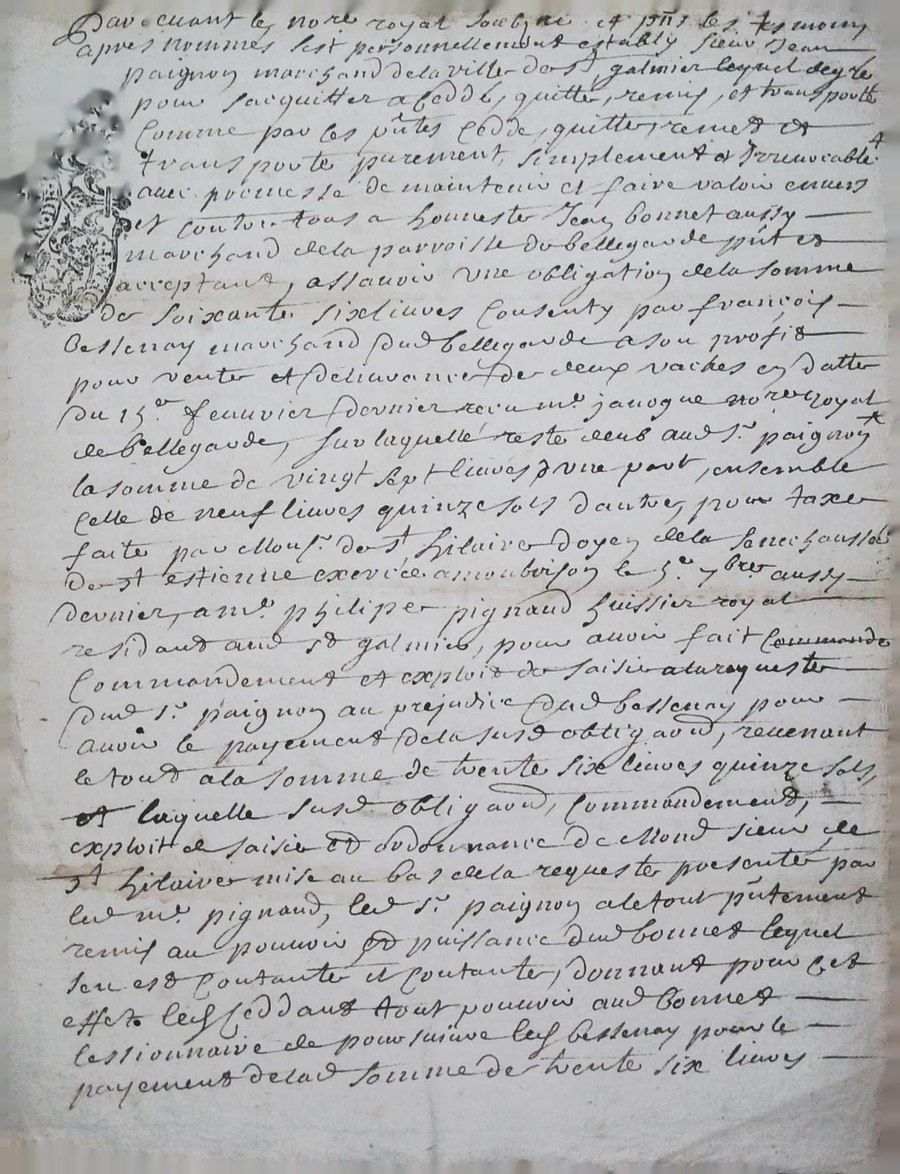 Pardevant le no.re royal soubzné et pnts les tesmoins
apres nommes sest personnellement estably sieur Jean
paignon marchand de la ville de st galmier lequel de gre
pour sacquitter a cedde, quitte, remis, et transporte
Comme par ces pntes cedde, quitte, remet et
transporte purement, simplement et Irreuocable
auec promesse de maintenir et faire valoir enuers
et contre tous a honneste Jean bonnet aussy
marchand de la parroisse de bellegarde pnt et
acceptant, assauoir vne obligation de la somme
de soixante six liures Consenty par françois
bessenay marchand dud bellegarde a son profit
pour vente et deliurance de deux vaches en datte
du 15.e feburier dernier receu me. janogue no.re royal
de bellegarde, sur laquelle reste deub aud sr. paignon
la somme de vingt sept liures d'vne part, ensemble
Celle de neuf liures quinze sols d'autre, pour taxe
faite par Monsr. de st hilaire doyen de la senechaussée
de st estienne exercée a monbrison le 5.e 7bre aussy
dernier, a me. philipe pignaud huissier royal
residant aud st galmier, pour auoir fait Commande
Commandement et exploit de saisie a la requeste
dud sr. paignon au prejudice dud bessenay pour
auoir le payement de la susd obliga͠on, reuenant
le tout a la somme de trente six liures quinze sols,
et laquelle susd obliga͠on, Commandement,
exploit de saisie et ordonnance de Mond sieur de
st hilaire mise au bas de la requeste presentée par
led me. pignaud, led sr. paignon a le tout pntement
remis au pouuoir et puissance dud bonnet lequel
sen est contante et contante, donnant pour cet
effet led Ceddant tout pouuoir aud bonnet
Cessionnaire de poursuiure led bessenay pour le
payement de lad somme de trente six liures